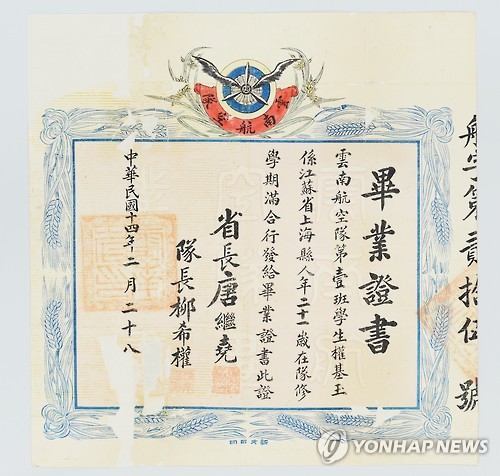 雲南航空隊
航字第貳拾伍號
畢業證書
雲南航空隊第壹班學生權基玉
係江蘇省上海縣人年二十一歲在隊修
學期滿合行發給畢業證書此證
省長唐繼堯
隊長柳希權
中華民國十四年二月二十八
YONHAP NEWS